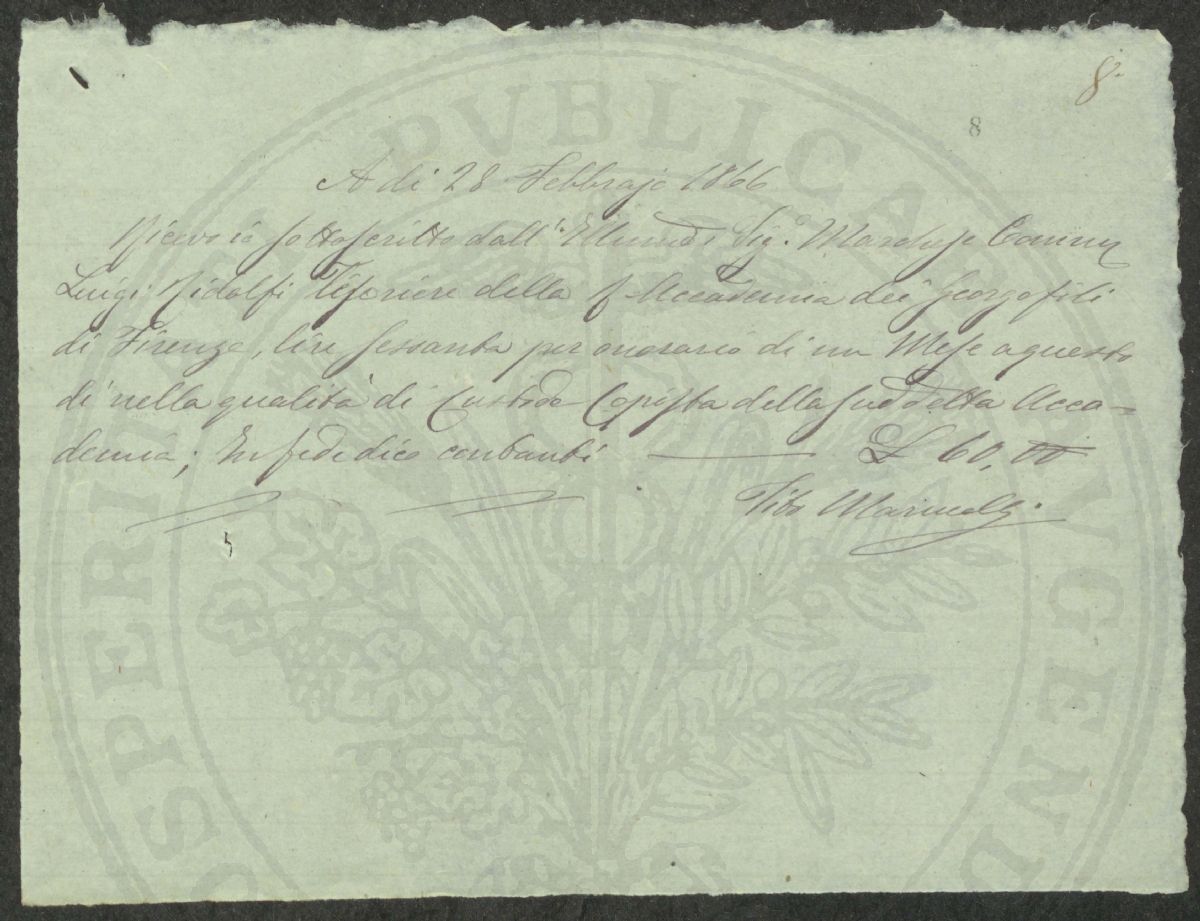 8
8
A di 28 Febbrajo 1866
Ricevo io sottoscritto dall' Illmo Sig. Marchese
Luigi Ridolfi Tesoriere della R. Accademia dei Georgofili
di Firenze, lire sessanta per onorario di un Mese a questo
dì nella qualità di Custode Copista della suddetta Acca=
demia; In fede dico contanti — £ 60,00
Tito
PUBLICAE
PROSPERITATI AUGENDAE